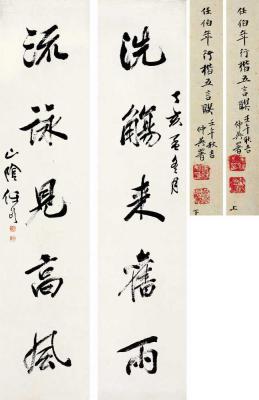 洗觴来舊雨
丁亥
月
流詠見高風
山陰任頤
任伯年行楷五言聯
壬午秋吉
仲英署
上
任伯年行楷五言聯
壬午秋吉
仲英署
下